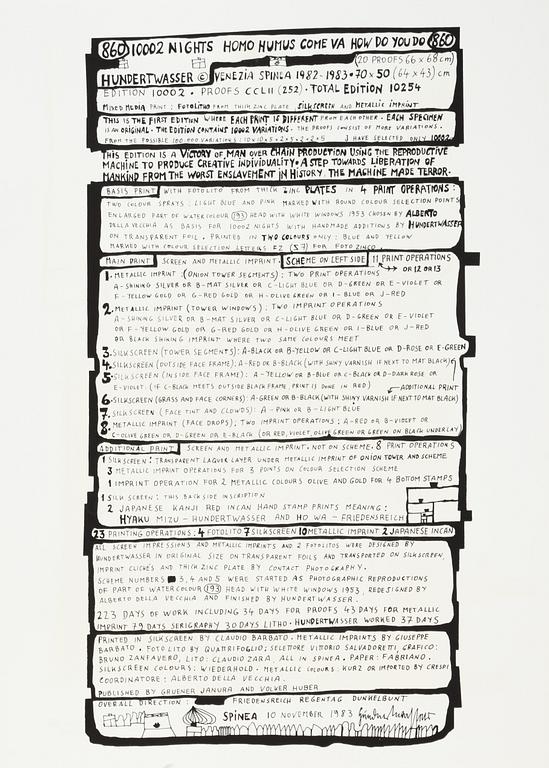 860 10002 NIGHTS HOMO HUMUS COME VA HOW DO YOU DO 860
(20 PROOFS 66 x 68 cm)
HUNDERTWASSER © VENEZIA SPINEA 1982-1983 • 70 x 50 (64 x 43) cm
EDITION 10002 • PROOFS CCLII (252) • TOTAL EDITION 10254
MIXED MEDIA PRINT: FOTOLITHO FROM THICK ZINC PLATE, SILKSCREEN AND METALLIC IMPRINT
THIS IS THE FIRST EDITION WHERE EACH PRINT IS DIFFERENT FROM EACH OTHER • EACH SPECIMEN
IS AN ORIGINAL • THE EDITION CONTAINS 10002 VARIATIONS. THE PROOFS CONSIST OF MORE VARIATIONS.
FROM THE POSSIBLE VARIATIONS: I HAVE SELECTED ONLY 10002.
THIS EDITION IS A VICTORY OF MAN OVER CHAIN PRODUCTION USING THE REPRODUCTIVE
MACHINE TO PRODUCE CREATIVE INDIVIDUALITY • A STEP TOWARDS LIBERATION OF
MANKIND FROM THE WORST ENSLAVEMENT IN HISTORY. THE MACHINE MADE TERROR.
BASIS PRINT WITH FOTOLITO FROM THICK ZINC PLATES IN 4 PRINT OPERATIONS:
TWO COLOUR SPRAYS: LIGHT BLUE AND PINK MARKED WITH ROUND COLOUR SELECTION POINTS
ENLARGED PART OF WATERCOLOUR (193) HEAD WITH WHITE WINDOWS 1953 CHOSEN BY ALBERTO
DELLA VECCHIA AS BASIS FOR 10002 NIGHTS WITH HANDMADE ADDITIONS BY HUNDERTWASSER
ON TRANSPARENT FOIL. PRINTED IN TWO COLOURS ONLY: BLUE AND YELLOW
MARKED WITH COLOUR SELECTION LETTERS FZ (57) FOR FOTO ZINCO.
MAIN PRINT SCREEN AND METALLIC IMPRINT. SCHEME ON LEFT SIDE 11 PRINT OPERATIONS
OR 12 OR 13
1. METALLIC IMPRINT (ONION TOWER SEGMENTS): TWO PRINT OPERATIONS
A - SHINING SILVER OR B - MAT SILVER OR C - LIGHT BLUE OR D - GREEN OR E - VIOLET OR
F - YELLOW GOLD OR G - RED GOLD OR H - OLIVE GREEN OR I - BLUE OR J - RED
2. METALLIC IMPRINT (TOWER WINDOWS): TWO IMPRINT OPERATIONS
A - SHINING SILVER OR B - MAT SILVER OR C - LIGHT BLUE OR D - GREEN OR E - VIOLET
OR F - YELLOW GOLD OR G - RED GOLD OR H - OLIVE GREEN OR I - BLUE OR J - RED
OR BLACK SHINING IMPRINT WHERE TWO SAME COLOURS MEET
3. SILKSCREEN (TOWER SEGMENTS): A - BLACK OR B - YELLOW OR C - LIGHT BLUE OR D - ROSE OR E - GREEN
4. SILKSCREEN (OUTSIDE FACE FRAME): A - RED OR B - BLACK (WITH SHINY VARNISH IF NEXT TO MAT BLACK)
5. SILKSCREEN (INSIDE FACE FRAME): A - YELLOW OR B - BLUE OR C - BLACK OR D - DARK ROSE OR
E - VIOLET. (IF C BLACK MEETS OUTSIDE BLACK FRAME, PRINT IS DONE IN RED) ADDITIONAL PRINT
6. SILKSCREEN (GRASS AND FACE CORNERS): A - GREEN OR B - BLACK (WITH SHINY VARNISH IF NEXT TO MAT BLACK)
7. SILKSCREEN (FACE TINT AND CLOWDS): A - PINK OR B - LIGHT BLUE
8. METALLIC IMPRINT (FACE DROPS); TWO IMPRINT OPERATIONS: A - RED OR B - VIOLET OR
C - OLIVE GREEN OR D - GREEN OR E - BLACK (OR RED, VIOLET, OLIVE GREEN OR GREEN ON BLACK UNDERLAY)
ADDITIONAL PRINT SCREEN AND METALLIC IMPRINT. NOT ON SCHEME. 8 PRINT OPERATIONS
1 SILKSCREEN: TRANSPARENT LAQUER LAYER UNDER METALLIC IMPRINT OF ONION TOWER AND SCHEME
3 METALLIC IMPRINT OPERATIONS FOR 3 POINTS ON COLOUR SELECTION SCHEME
1 IMPRINT OPERATION FOR 2 METALLIC COLOURS OLIVE AND GOLD FOR 4 BOTTOM STAMPS
1 SILK SCREEN: THIS BACK SIDE INSCRIPTION
2 JAPANESE KANJI RED INCAN HAND STAMP PRINTS MEANING:
HYAKU MIZU - HUNDERTWASSER AND HO WA - FRIEDENSREICH
23 PRINTING OPERATIONS: 4 FOTOLITO 7 SILKSCREEN 10 METALLIC IMPRINT 2 JAPANESE INCAN
ALL SCREEN IMPRESSIONS AND METALLIC IMPRINTS AND 2 FOTOLITOS WERE DESIGNED BY
HUNDERTWASSER IN ORIGINAL SIZE ON TRANSPARENT FOILS AND TRANSPORTED ON SILKSCREEN,
IMPRINT CLICHÉS AND THICK ZINC PLATE BY CONTACT PHOTOGRAPHY.
SCHEME NUMBERS 3, 4 AND 5 WERE STARTED AS PHOTOGRAPHIC REPRODUCTIONS
OF PART OF WATERCOLOUR (193) HEAD WITH WHITE WINDOWS 1953, REDESIGNED BY
ALBERTO DELLA VECCHIA AND FINISHED BY HUNDERTWASSER.
223 DAYS OF WORK INCLUDING 34 DAYS FOR PROOFS 43 DAYS FOR METALLIC
IMPRINT 79 DAYS SERIGRAPHY 30 DAYS LITHO • HUNDERTWASSER WORKED 37 DAYS
PRINTED IN SILKSCREEN BY CLAUDIO BARBATO. METALLIC IMPRINTS BY GIUSEPPE
BARBATO. FOTO LITO BY QUATTRIFOGLIO; SELETTORE VITTORIO SALVADORETTI, GRAFICO:
BRUNO ZANFAVERO, LITO: CLAUDIO ZARA, ALL IN SPINEA. PAPER: FABRIANO.
SILKSCREEN COLOURS: WIEDERHOLD. METALLIC COLOURS: KURZ OR IMPORTED BY CRESPI
COORDINATORE: ALBERTO DELLA VECCHIA.
PUBLISHED BY GRUENER JANURA AND VOLKER HUBER
OVERALL DIRECTION: FRIEDENSREICH REGENTAG DUNKELBUNT
SPINEA 10 NOVEMBER 1983 Hundertwasser